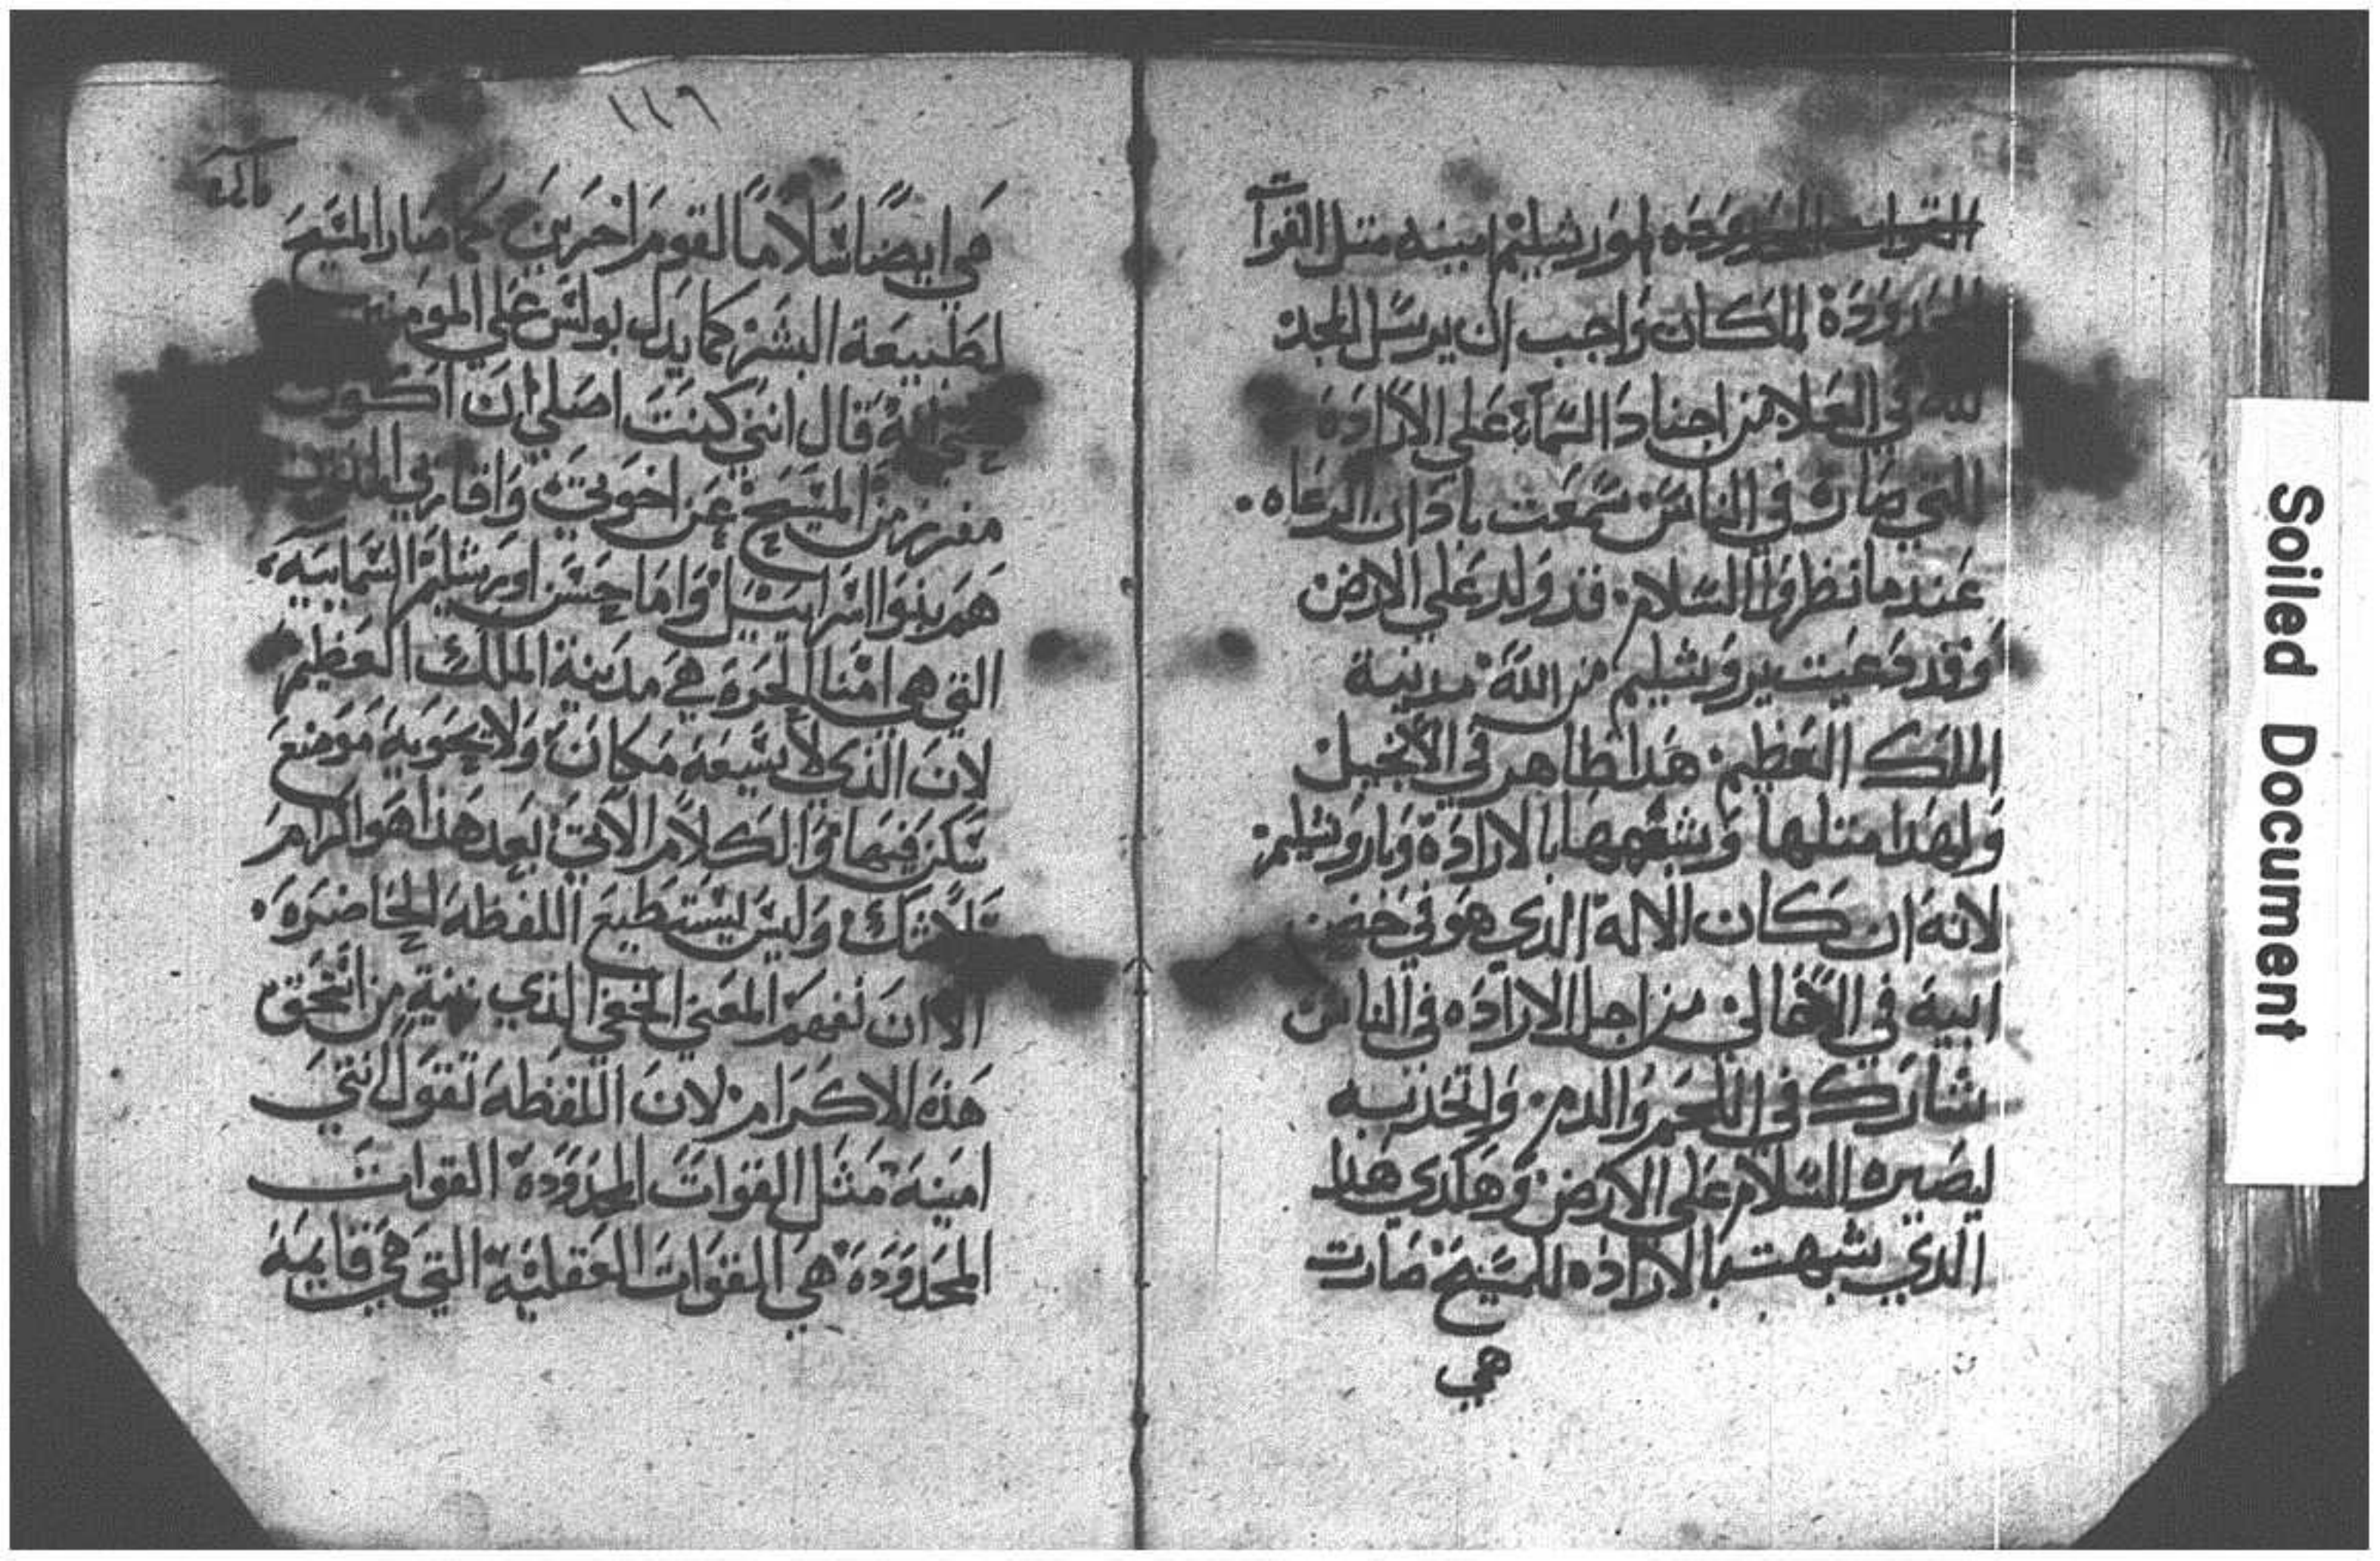 اورشليم امينه متل القوآت
المحدودة لمكان واجب ان يرسل المجد
لله في العلا من اجناد السمآء على الارادة
التي صارت في الناس سمعت باذان الرعاه
عندما نظروا السلام قد ولد على الارض
وقد دعيت يروشليم من الله مدينة
الملك العظيم هدا ظاهر في الانجيل
ولهدا متلها وشبهها بالارادة وباروشليم
لانه ان كان الاله الدي هو في حضن
ابيه في الاعالي من اجل الارادة في الناس
شارك في اللحم والدم واتحد به
ليصير السلام على الارض وهكدي هدا
الدي شبهت بالاراده المسيح صارت
هي
١١٦
هي ايضا سلاما لقوم اخرين كما صار المسيح
لطبيعة البشر كما يدل بولس على المومنين
قال انني كنت اصلي ان اكون
مفرز من المسيح عن اخوتي واقاربي الذين
هم بنوا اسراييل واما حسن اورشليم السماييه
التي هي امنا الحرة هي مدينة الملك العظيم
لان الذي لا يسعه مكان ولا يحويه موضع
سكن فيها والكلام الاتي بعد هذا هو اكرام
بلا شك وليس يستطيع اللفظه الحاضره
الا ان نفهم المعنى الخفي الذي نيية من استحق
هذه الاكرام لان اللفظه تقول انتي
امينة مثل القوات المحدودة القوات
المحدودة هي القوات العقلية التي هي قايمة